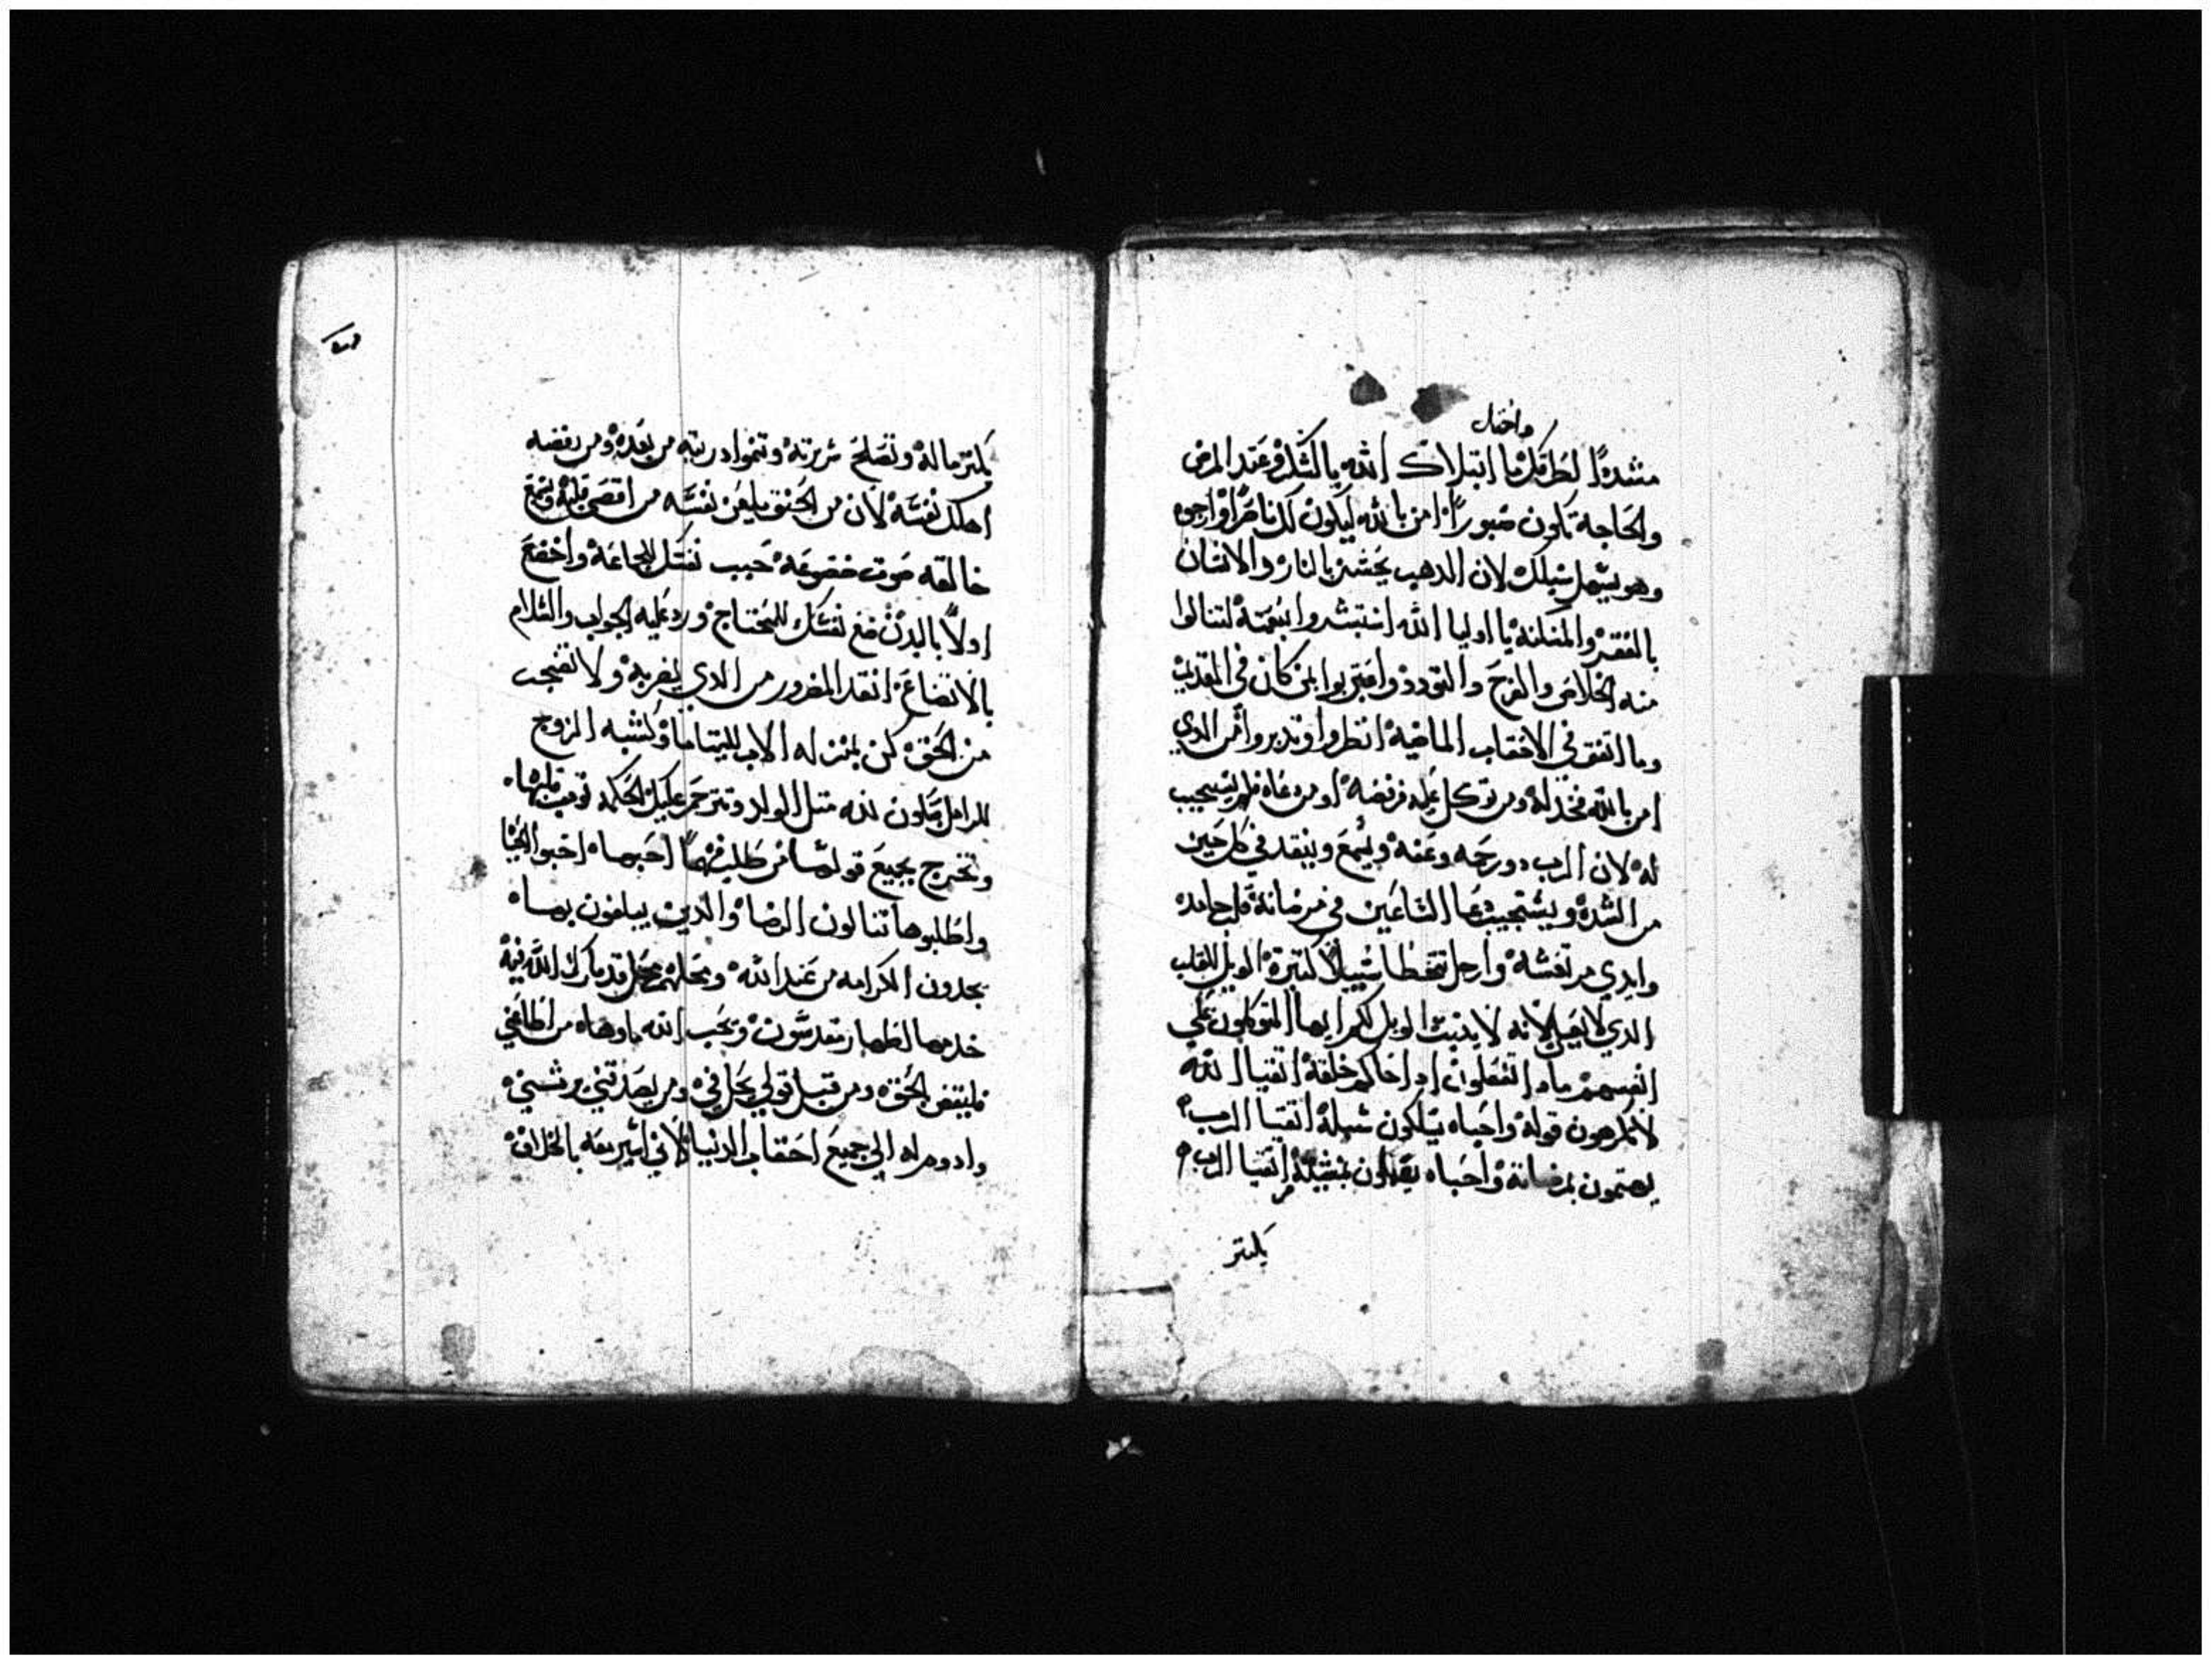 واحتمل
مشددًا لطرقك ما ابتلاك الله بالشكر وعند المرض
والحاجة تكون صبورًا امن بالله ليكون لك ناصرًا وارجوه
وهو يسهل سبلك لان الدهب يختبر بالنار والانسان
بالفقر والمسكنة يا اوليا الله استبشروا بنعمته لتنالوا
منه الخلاص والفرح والتودد واعتبروا بمن كان في القديم
وما اتفق في الاحقاب الماضيه انظروا وتدبروا من الدي
امن بالله فخدله ومن توكل عليه فرفضه او من دعاه فلم يستجيب
له لان الرب دو رحمه وعفه ويسمع وينقد في كل حين
من الشدة ويستجيب دعا الساعين في مرضاته
وايدي مرتعشة وارجل تتخطا سبيلاً كتيرة الويل للقلب
الدي لانه لا يتبت الويل لكم ايها المتوكلون علي
انفسهم مادا تفعلون ادا حاكم خلقة اتقيا الله
لا يكرهون قوله واحباه يسلكون سبله اتقيا الرب
يهتمون بمرضاته واحباه بسنته اتقيا الرب
يكتر
يكتر ماله وتصلح سريرته وتنموا دريته من بعده ومن رفضه
اهلك نفسه لان من الحنق يلعن نفسه من اقصي قلبه ويسمع
خالقه صوت خضوعه حبب نفسك للجماعة واخضع
اولاً بالبدن ضع نفسك للمحتاج ورد عليه الجواب والسلام
بالاتضاع انقد المضرور من الدي يضر به ولا تضجت
من الحق كن بمنزله الاب لليتاما وكشبه الزوج
للارامل تكون لله متل الولد وتترحم عليك الحكمه
وتخرج بجميع قولها من طلب فهمًا احبها احبوا الحيا
واطلبوها تنالون الرضا والدين يبلغون بها
يجدون الكرامه من عند الله ومحلهم محل قد بارك الله فيه
خدمها اطهار مقدسون ويحب الله ماوها من اطاعني
فليبتغي الحق ومن قبل قولي يحل في ومن يصدقني يرتني
وادومه الي جميع احقاب الدنيا لاني اسير معه بالخلاف